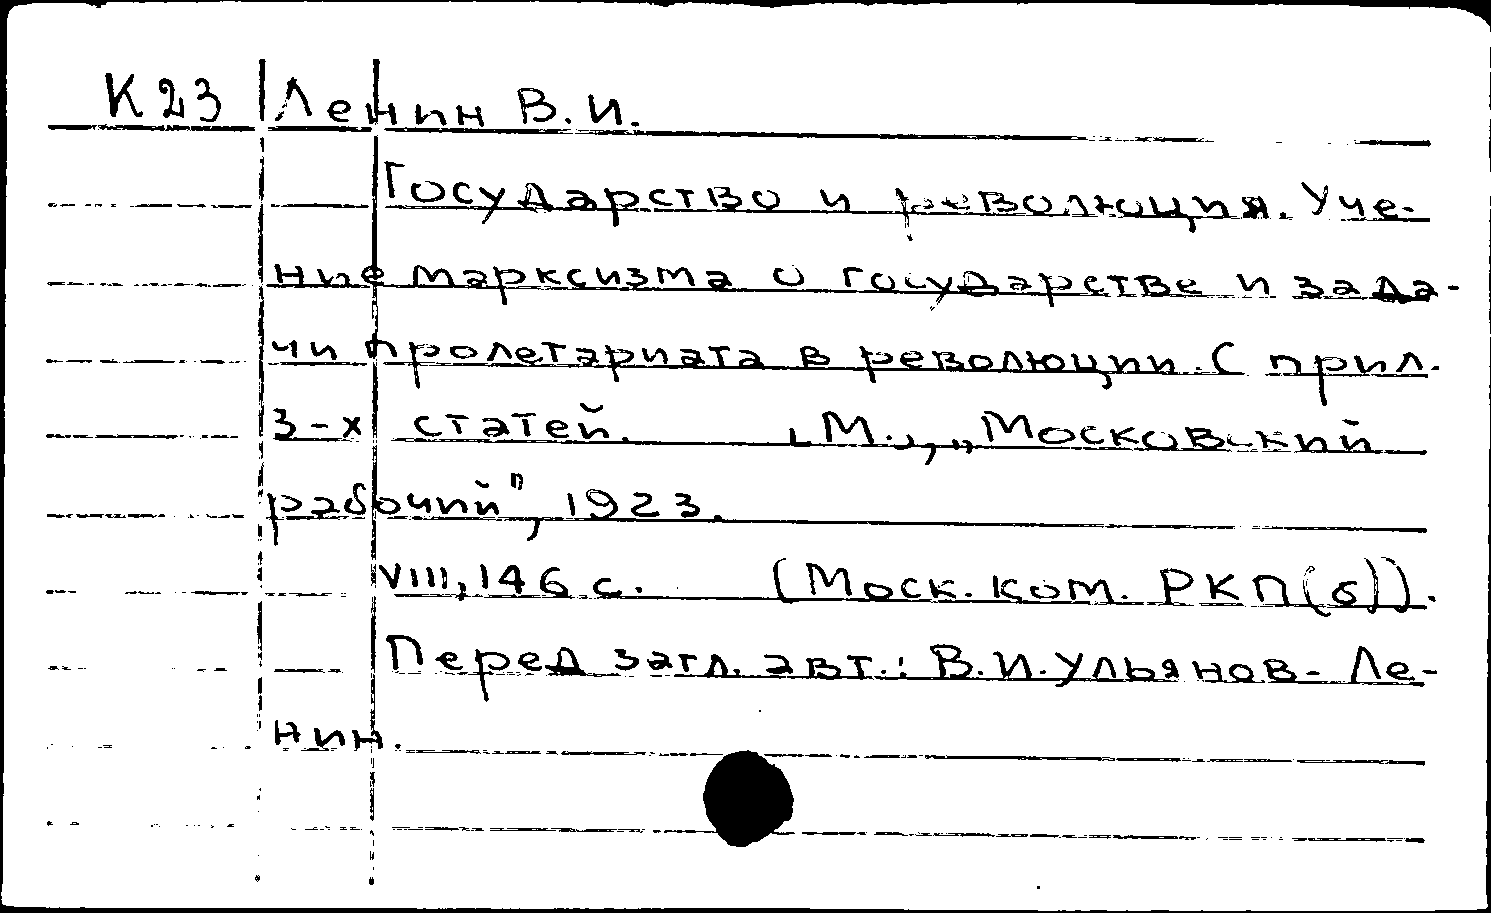 К 23 Ленин В. И.
Государство и революция. Уче-
ние марксизма о государстве и зада-
чи пролетариата в революции. С прил.
3-х статей. М., „Московский
рабочий", 1923.
VIII, 146 с. (Моск. ком. РКП(б)).
Перед загл. авт.: В. И. Ульянов-Ле-
нин.